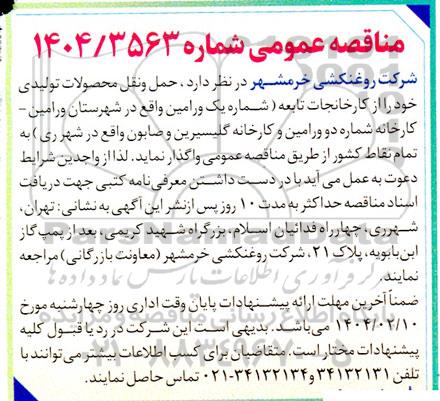 مناقصه عمومی شماره ۱۴۰۴/۳۵۶۳
شرکت روغنکشی خرمشهر در نظر دارد ، حمل ونقل محصولات تولیدی
خود را از کارخانجات تابعه ( شماره یک ورامین واقع در شهرستان ورامین -
کارخانه شماره دو ورامین و کارخانه گلیسیرین و صابون واقع در شهر ری ) به
تمام نقاط کشور از طریق مناقصه عمومی واگذار نماید. لذا از واجدین شرایط
دعوت به عمل می آید با در دست داشتن معرفی نامه کتبی جهت دریافت
اسناد مناقصه حداکثر به مدت ۱۰ روز پس از نشر این آگهی به نشانی : تهران،
شهرری، چهارراه فدائیان اسلام، بزرگراه شهید کریمی، بعد از پمپ گاز
ابن بابویه، پلاک ۲۱، شرکت روغنکشی خرمشهر (معاونت بازرگانی) مراجعه
نمایند.
ضمناً آخرین مهلت ارائه پیشنهادات پایان وقت اداری روز چهارشنبه مورخ
۱۴۰۴/۰۲/۱۰ می باشد. بدیهی است این شرکت در رد یا قبول کلیه
پیشنهادات مختار است. متقاضیان برای کسب اطلاعات بیشتر می توانند با
تلفن ۳۴۱۳۲۱۳۱ و ۳۴۱۳۲۱۳۴-۰۲۱ تماس حاصل نمایند.